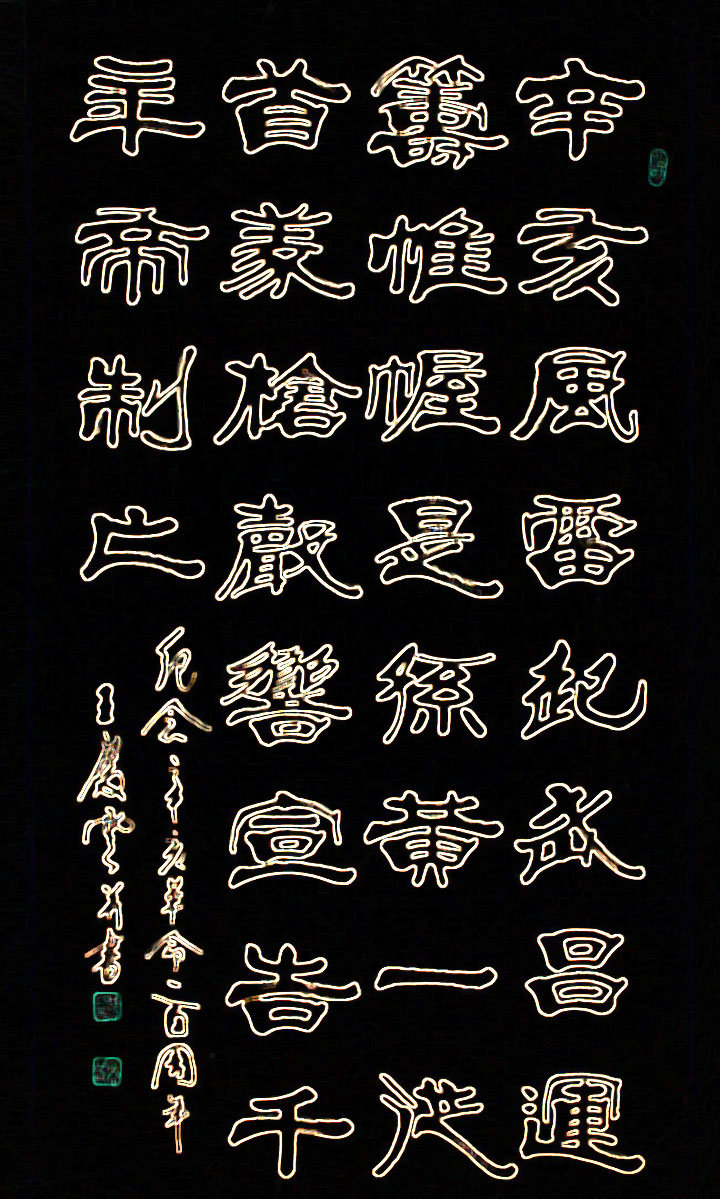 辛亥風雷起武昌運
籌帷幄是孫黃一從
首義槍聲響宣告千
年帝制亡
紀念辛亥革命一百周年
王慶雲并書